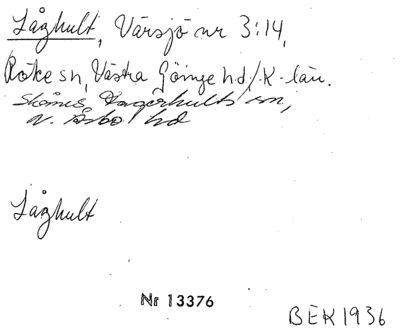 Låghult, Värsjö nr 3:14,
Röke sn, Västra Göinge hd/.K-län.
Skånes Fagerhults sn,
N. Åsbo hd
Låghult
Nr 13376
BEK 1936